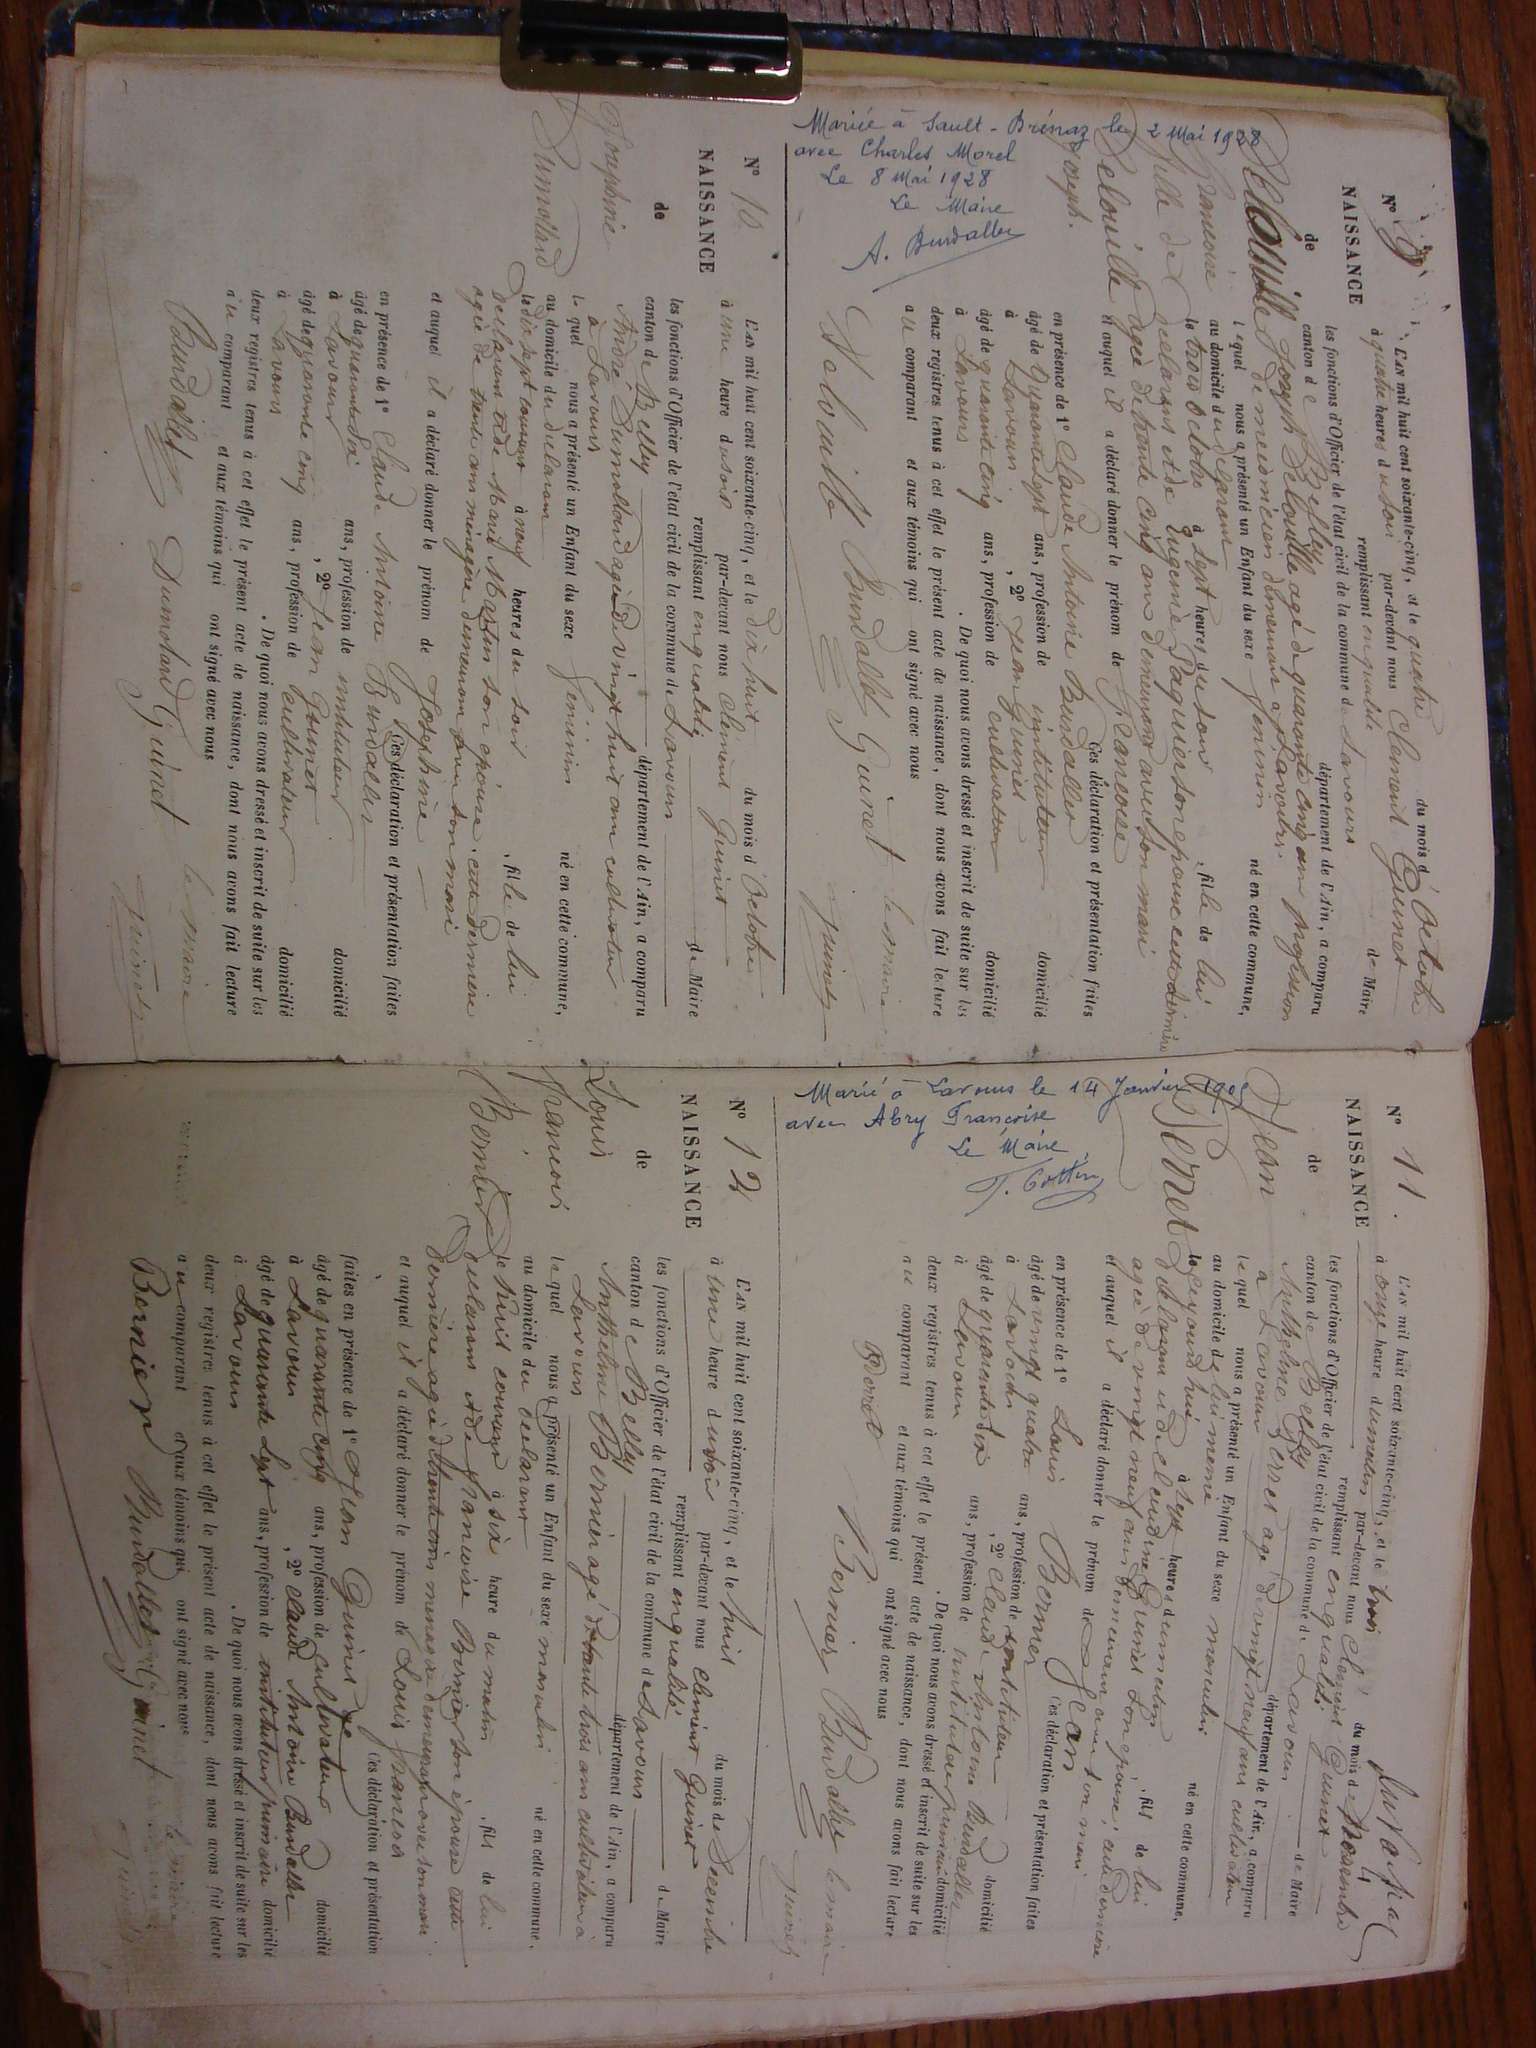 Nº 9
NAISSANCE
de
Delouille
Françoise
fille de
Delouille
Joseph.
L'AN mil huit cent soixante-cinq, et le quatre du mois d'Octobre
à quatre heures du soir par-devant nous Clément Guinet
remplissant en qualité de Maire
les fonctions d'Officier de l'état civil de la commune de Lavours
canton de Belley département de l'Ain, a comparu
Joseph Delouille agé de quarante cinq ans profession
de demeurant à Lavours.
lequel nous a présenté un Enfant du sexe féminin né en cette commune,
au domicile du déclarant
le trois Octobre à sept heures du soir, fille de lui
déclarant et de Eugénie son épouse cette dernière
agée de trente cinq ans demeurant avec son mari
et auquel il a déclaré donner le prénom de Françoise
Ces déclaration et présentation faites
en présence de 1º Claude Antoine Burdallet
âgé de quarante sept ans, profession de instituteur domicilié
à Lavours, 2º Jean Guinet
âgé de quarante cinq ans, profession de cultivateur domicilié
à Lavours. De quoi nous avons dressé et inscrit de suite sur les
deux registres tenus à cet effet le présent acte de naissance, dont nous avons fait lecture
au comparant et aux témoins qui ont signé avec nous
Delouille Burdallet Guinet le maire
Guinet
Mariée à Sault-Brénaz le 2 Mai 1928
avec Charles Morel
Le 8 Mai 1928
Le Maire
A. Burdallet
Nº 10
NAISSANCE
de
Joséphine
Dumollard
L'AN mil huit cent soixante-cinq, et le dix huit du mois d'Octobre
à une heure du soir par-devant nous Clément Guinet
remplissant en qualité de Maire
les fonctions d'Officier de l'état civil de la commune de Lavours
canton de Belley département de l'Ain, a comparu
André Dumollard agé de vingt huit ans cultivateur
à Lavours
lequel nous a présenté un Enfant du sexe féminin né en cette commune,
au domicile du déclarant
le dix sept courant à neuf heures du soir, fille de lui
déclarant et de Marie Martin son épouse, cette dernière
agée de trente ans ménagère demeurant avec son mari
et auquel il a déclaré donner le prénom de Joséphine
Ces déclaration et présentation faites
en présence de 1º Claude Antoine Burdallet
âgé de quarante six ans, profession de instituteur domicilié
à Lavours, 2º Jean Guinet
âgé de quarante cinq ans, profession de cultivateur domicilié
à Lavours. De quoi nous avons dressé et inscrit de suite sur les
deux registres tenus à cet effet le présent acte de naissance, dont nous avons fait lecture
au comparant et aux témoins qui ont signé avec nous
Burdallet Dumolard Guinet le maire
Guinet
Nº 11.
NAISSANCE
de
Jean
Berret
L'AN mil huit cent soixante-cinq, et le trois du mois de Novembre
à onze heure du matin par-devant nous Clément Guinet
remplissant en qualité de Maire
les fonctions d'Officier de l'état civil de la commune de Lavours
canton de Belley département de l'Ain, a comparu
Anthelme Berret agé de vingt neuf ans cultivateur
à Lavours
lequel nous a présenté un Enfant du sexe masculin né en cette commune,
au domicile de lui même
le ce jourd'hui à sept heure du matin, fils de lui
déclarant et de Claudine Guinet son épouse, cette dernière
agée de vingt neuf ans demeurant avec son mari
et auquel il a déclaré donner le prénom de Jean
Ces déclaration et présentation faites
en présence de 1º Louis Bernier
âgé de vingt quatre ans, profession de domicilié
à Lavours, 2º Claude Antoine Burdallet
âgé de quarante six ans, profession de instituteur primaire domicilié
à Lavours. De quoi nous avons dressé et inscrit de suite sur les
deux registres tenus à cet effet le présent acte de naissance, dont nous avons fait lecture
au comparant et aux témoins qui ont signé avec nous
Berret Bernier Burdallet le maire
Guinet
Marié à Lavours le 14 Janvier 1905
avec Abry Françoise
Le Maire
J. Cottin
Nº 12
NAISSANCE
de
Louis
François
Bernier
L'AN mil huit cent soixante-cinq, et le huit du mois de Décembre
à une heure du soir par-devant nous Clément Guinet
remplissant en qualité de Maire
les fonctions d'Officier de l'état civil de la commune de Lavours
canton de Belley département de l'Ain, a comparu
Anthelme Bernier agé de trente trois ans cultivateur à
Lavours
lequel nous a présenté un Enfant du sexe masculin né en cette commune,
au domicile du déclarant
le huit courant à six heure du matin, fils de lui
déclarant et de Françoise Bernier son épouse cette
dernière agée de trente ans ménagère demeurant avec son mari
et auquel il a déclaré donner le prénom de Louis François
Ces déclaration et présentation
faites en présence de 1º Jean Guinet
âgé de quarante cinq ans, profession de cultivateur domicilié
à Lavours, 2º Claude Antoine Burdallet
âgé de quarante sept ans, profession de instituteur primaire domicilié
à Lavours. De quoi nous avons dressé et inscrit de suite sur les
deux registres tenus à cet effet le présent acte de naissance, dont nous avons fait lecture
au comparant et aux témoins qui ont signé avec nous
Bernier Burdallet Guinet le maire
Guinet